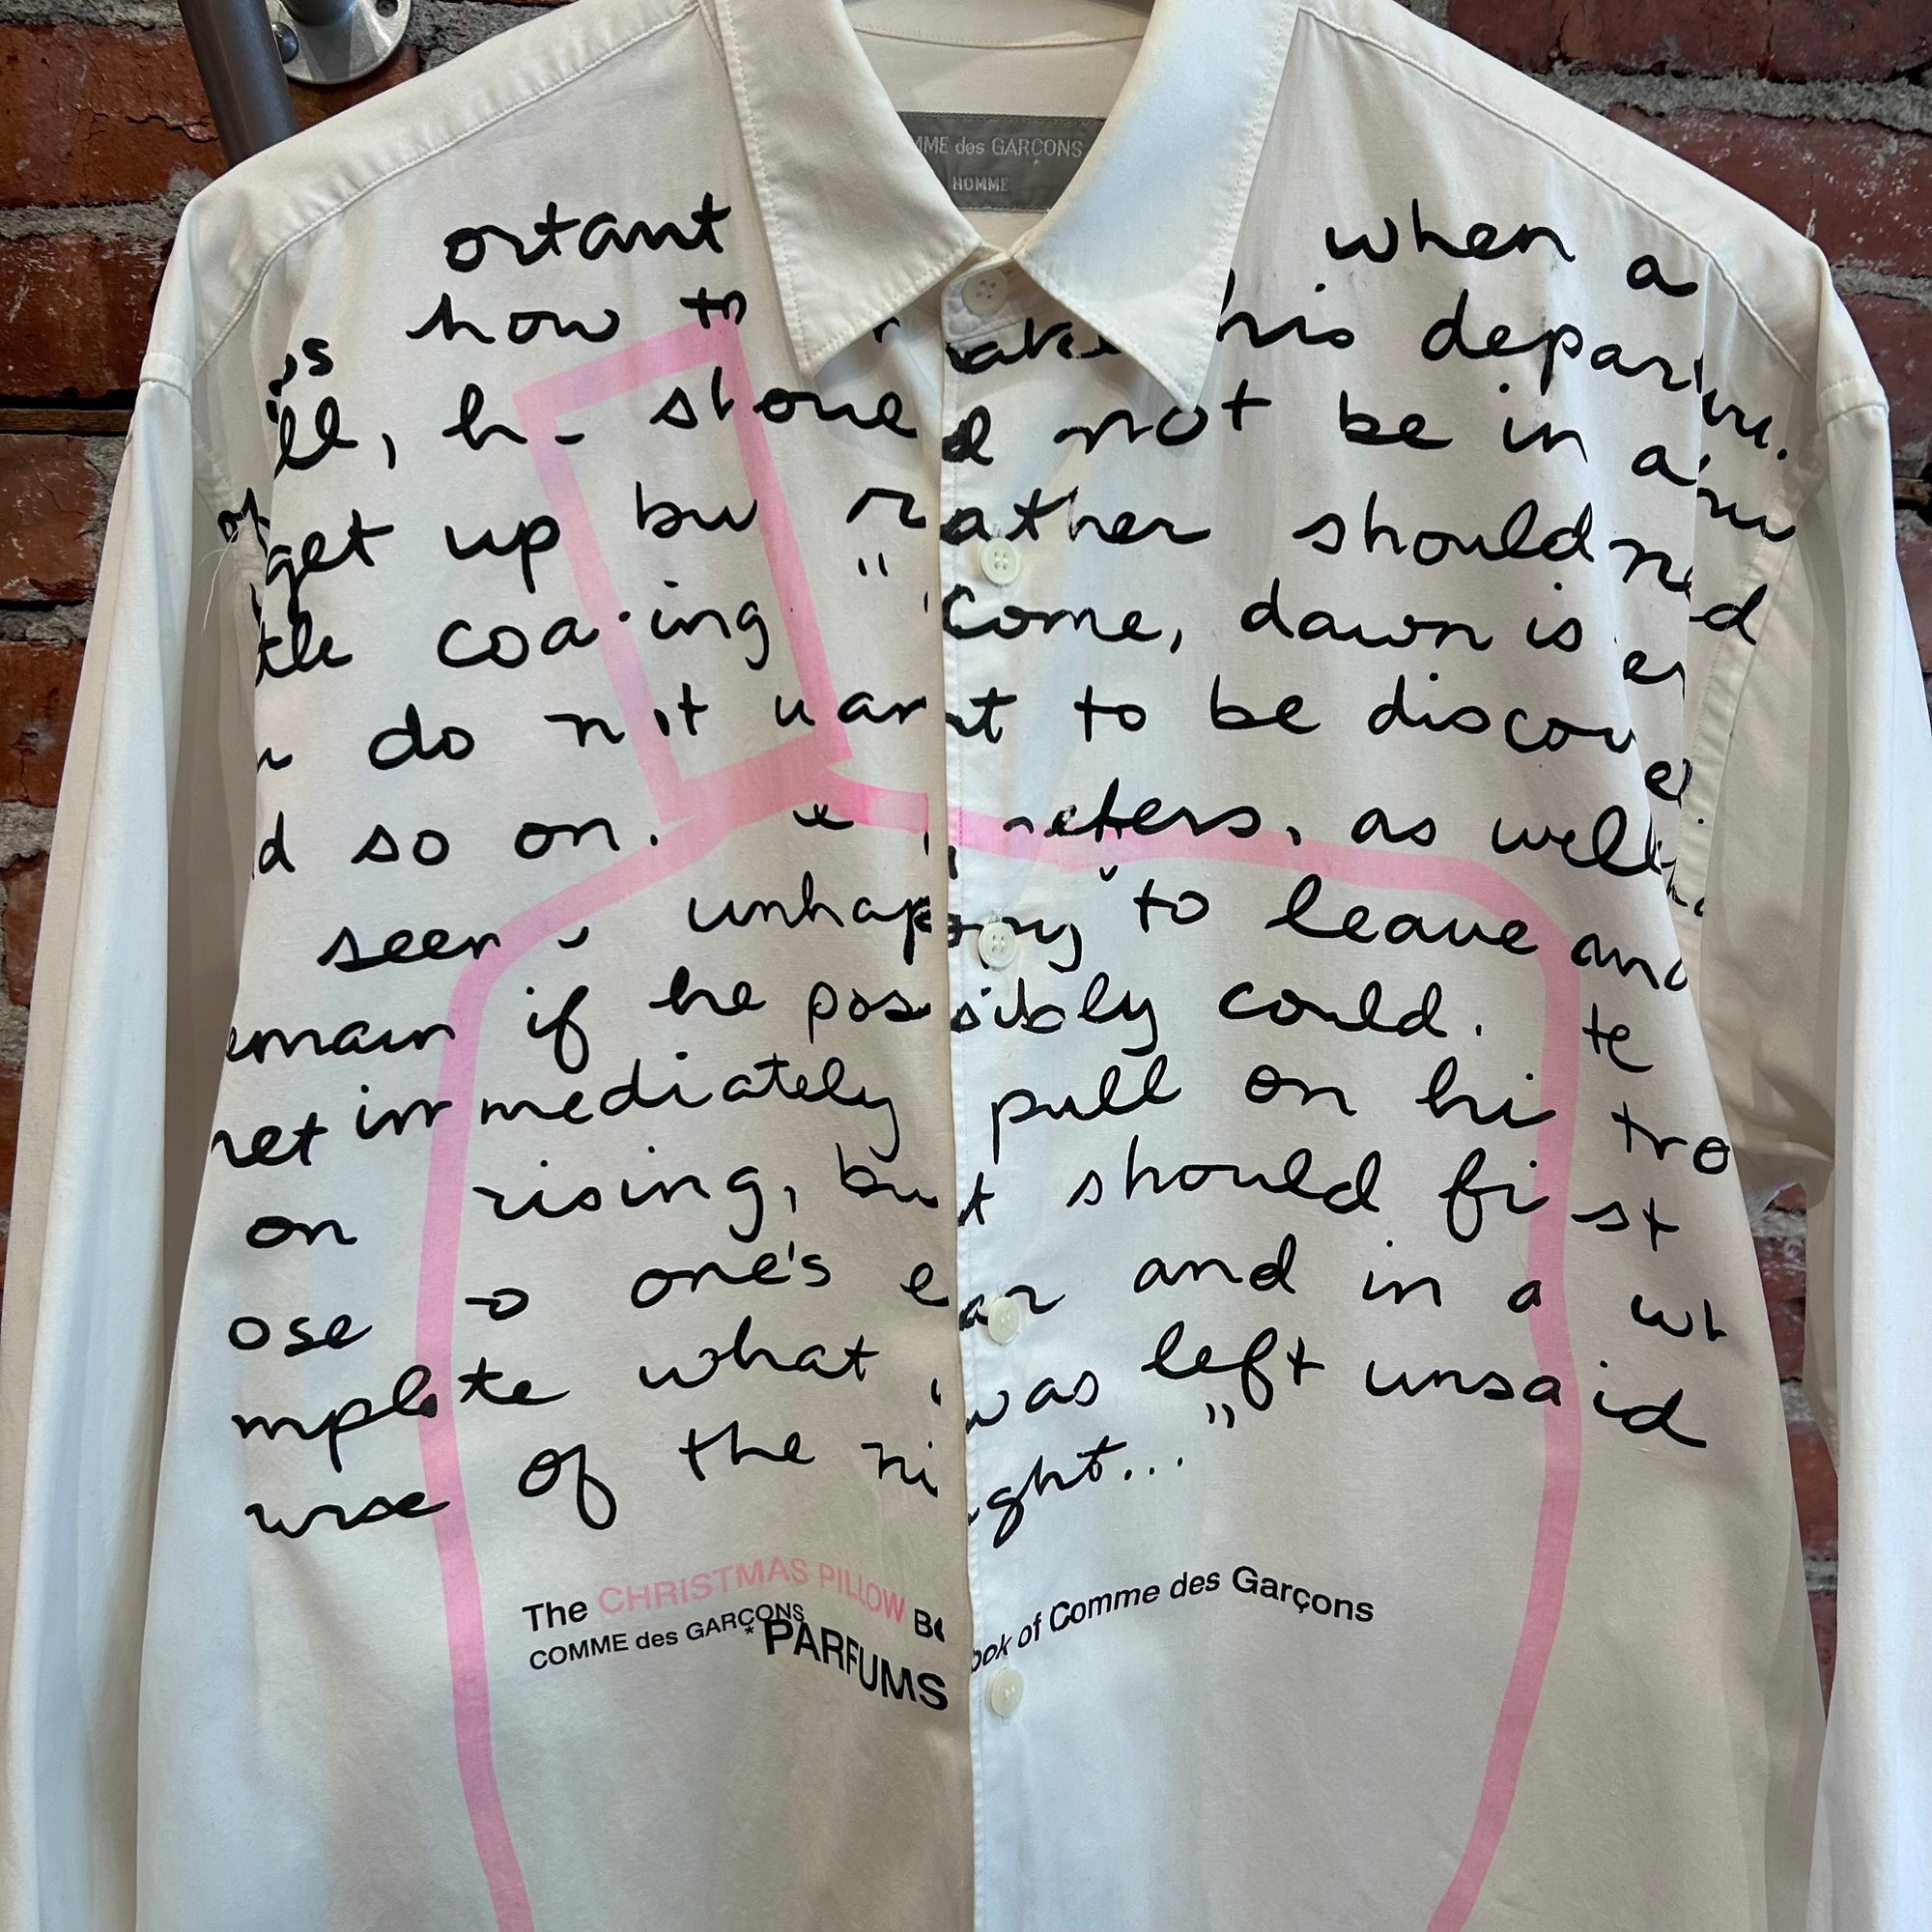 MME des GARÇONS
HOMME
ortant when a
how to make his depar
ll, h should not be in a
get up but rather should n d
tle coa ing "Come, dawn is
do not want to be discove
d so on. e, prefers, as well
seem unhappy to leave and
emain if he possibly could.
net immediately pull on hi tro
on rising, but should first
ose to one's ear and in a wh
mplete what was left unsaid
urse of the night..."
The CHRISTMAS PILLOW Book of Comme des Garçons
COMME des GARÇONS
* PARFUMS